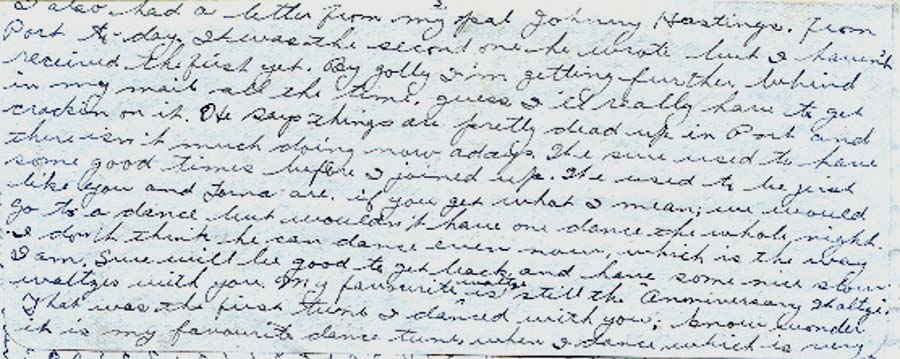 I also had a letter from my pal Johnny Hastings. from
Port to-day. It was the second one he wrote but I haven't
received the first yet. By golly I'm getting further behind
in my mail all the time. guess I'll really have to get
crackin on it. He says things are pretty dead up in Port and
there isn't much doing now adays. We sure used to have
some good times before I joined up. We used to be just
like you and Lorna are. if you get what I mean; we would
go to a dance but wouldn't have one dance the whole night.
I don't think he can dance even now, which is the way
I am. Sure will be good to get back and have some nice slow
waltzes with you. My favourite waltze is still the Anniversary Waltze.
That was the first tune I danced with you; know wonder
it is my favourite dance tune, when I dance which is very